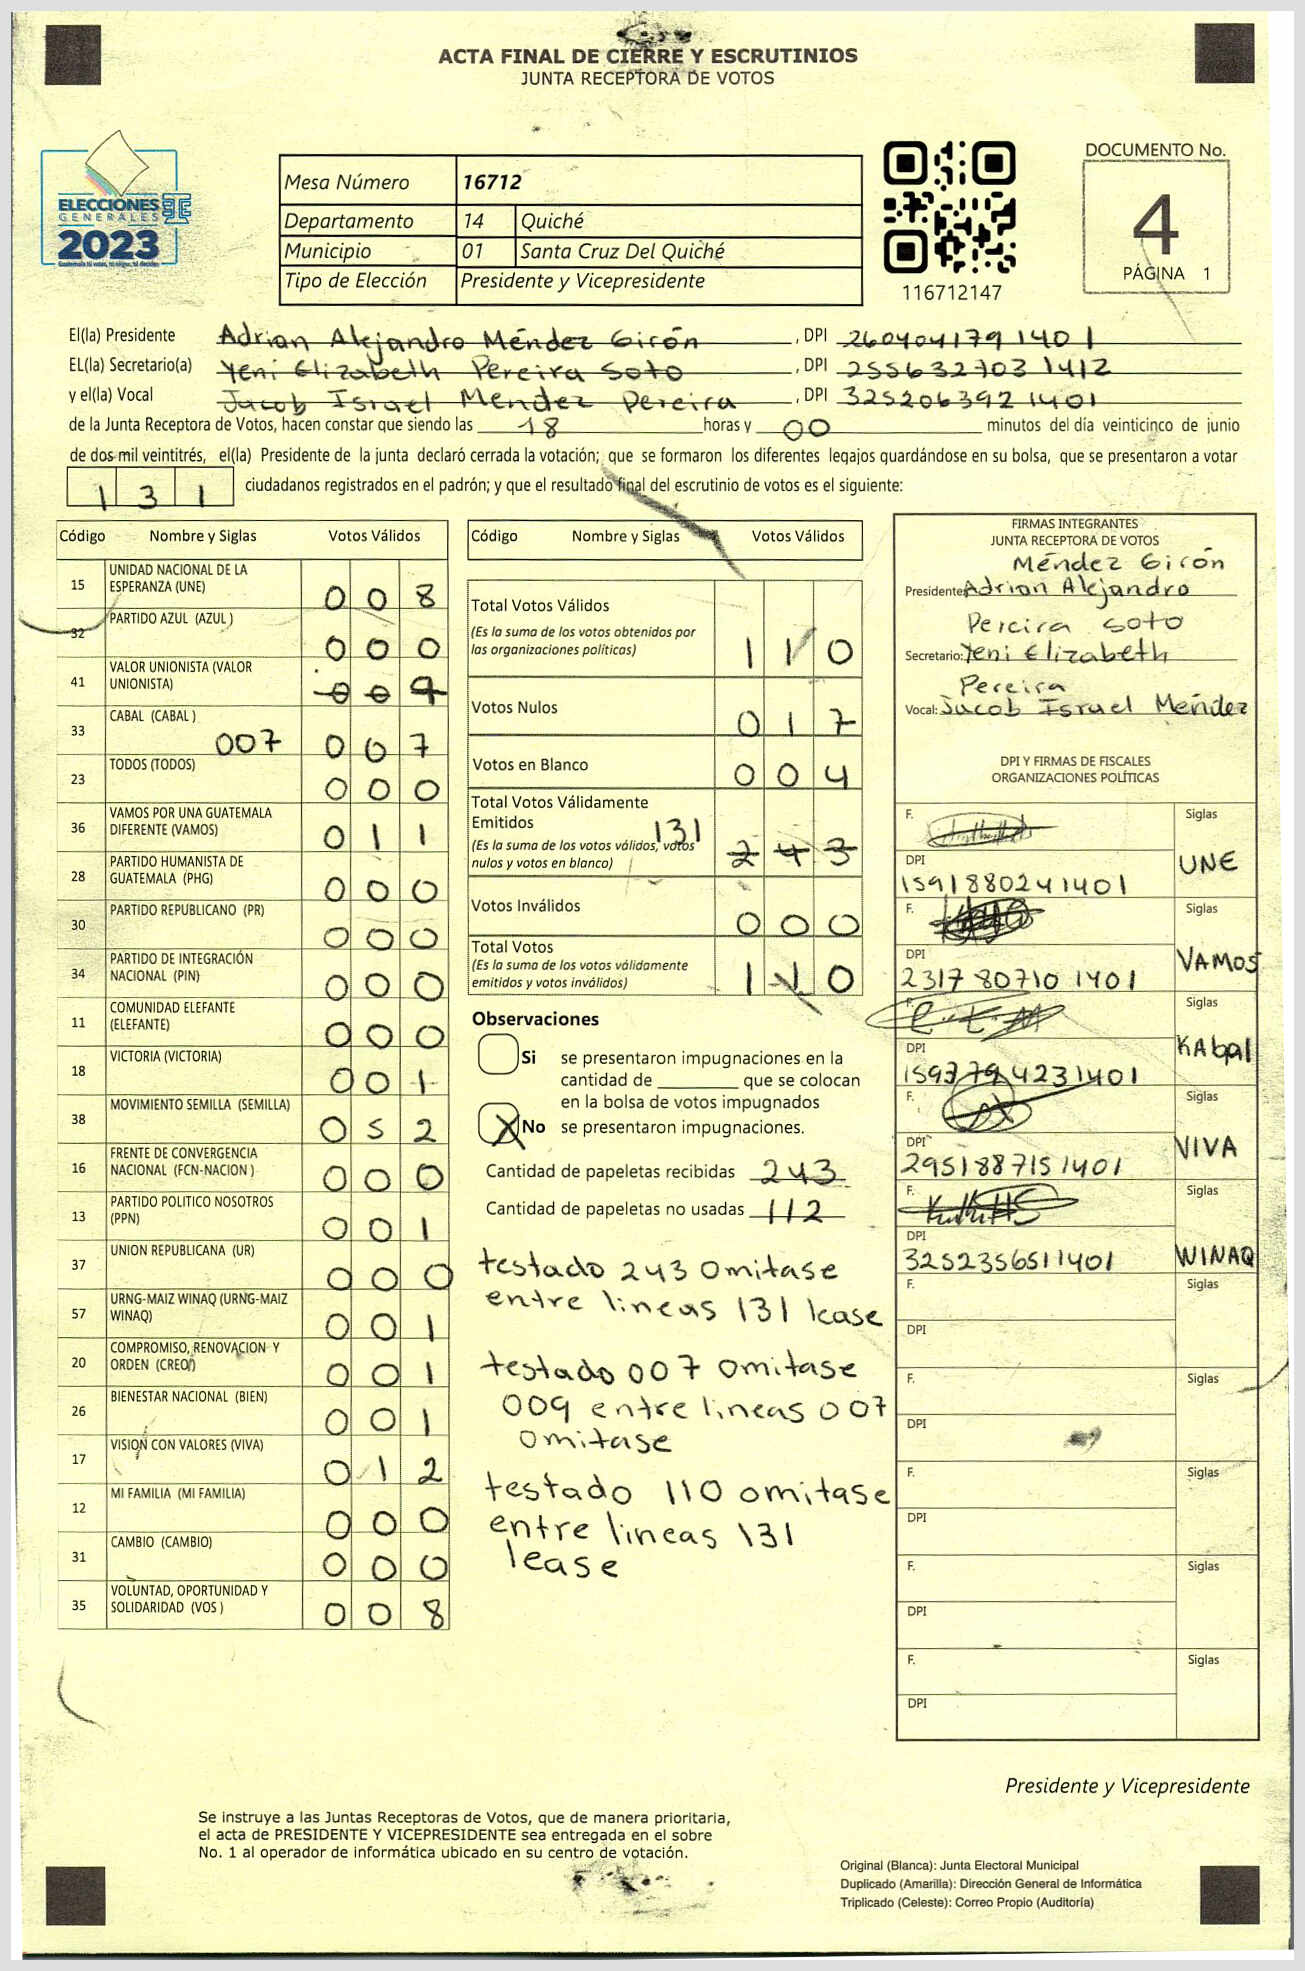 ACTA FINAL DE CIERRE Y ESCRUTINIOS
JUNTA RECEPTORA DE VOTOS
ELECCIONES
GENERALES
2023
Mesa Número 16712
Departamento 14 Quiché
Municipio 01 Santa Cruz Del Quiché
Tipo de Elección Presidente y Vicepresidente
116712147
DOCUMENTO No.
4
PÁGINA 1
El(la) Presidente Adrian Alejandro Méndez Girón , DPI 2604041791401
EL(la) Secretario(a) Yeni Elizabeth Pereira Soto , DPI 2556327031412
y el(la) Vocal Jacob Israel Mendez Pereira , DPI 3252063921401
de la Junta Receptora de Votos, hacen constar que siendo las 18 horas y 00 minutos del día veinticinco de junio
de dos mil veintitrés, el(la) Presidente de la junta declaró cerrada la votación; que se formaron los diferentes legajos guardándose en su bolsa, que se presentaron a votar
131 ciudadanos registrados en el padrón; y que el resultado final del escrutinio de votos es el siguiente:
Código Nombre y Siglas Votos Válidos
15 UNIDAD NACIONAL DE LA
ESPERANZA (UNE) 0 0 8
32 PARTIDO AZUL (AZUL ) 0 0 0
41 VALOR UNIONISTA (VALOR
UNIONISTA) 0 0 9
33 CABAL (CABAL ) 007 0 0 7
23 TODOS (TODOS) 0 0 0
36 VAMOS POR UNA GUATEMALA
DIFERENTE (VAMOS) 0 1 1
28 PARTIDO HUMANISTA DE
GUATEMALA (PHG) 0 0 0
30 PARTIDO REPUBLICANO (PR) 0 0 0
34 PARTIDO DE INTEGRACIÓN
NACIONAL (PIN) 0 0 0
11 COMUNIDAD ELEFANTE
(ELEFANTE) 0 0 0
18 VICTORIA (VICTORIA) 0 0 1
38 MOVIMIENTO SEMILLA (SEMILLA) 0 5 2
16 FRENTE DE CONVERGENCIA
NACIONAL (FCN-NACION ) 0 0 0
13 PARTIDO POLITICO NOSOTROS
(PPN) 0 0 1
37 UNION REPUBLICANA (UR) 0 0 0
57 URNG-MAIZ WINAQ (URNG-MAIZ
WINAQ) 0 0 1
20 COMPROMISO, RENOVACION Y
ORDEN (CREO) 0 0 1
26 BIENESTAR NACIONAL (BIEN) 0 0 1
17 VISION CON VALORES (VIVA) 0 1 2
12 MI FAMILIA (MI FAMILIA) 0 0 0
31 CAMBIO (CAMBIO) 0 0 0
35 VOLUNTAD, OPORTUNIDAD Y
SOLIDARIDAD (VOS ) 0 0 8
Código Nombre y Siglas Votos Válidos
Total Votos Válidos
(Es la suma de los votos obtenidos por
las organizaciones políticas) 1 1 0
Votos Nulos 0 1 7
Votos en Blanco 0 0 4
Total Votos Válidamente
Emitidos 131
(Es la suma de los votos válidos, votos
nulos y votos en blanco) 2 4 3
Votos Inválidos 0 0 0
Total Votos
(Es la suma de los votos válidamente
emitidos y votos inválidos) 1 1 0
Observaciones
Si se presentaron impugnaciones en la
cantidad de ________ que se colocan
en la bolsa de votos impugnados
X No se presentaron impugnaciones.
Cantidad de papeletas recibidas 243
Cantidad de papeletas no usadas 112
testado 243 Omitase
entre lineas 131 lease
testado 007 omitase
009 entre lineas 007
omitase
testado 110 omitase
entre lineas 131
lease
FIRMAS INTEGRANTES
JUNTA RECEPTORA DE VOTOS
Méndez Girón
Presidente: Adrian Alejandro
Pereira Soto
Secretario: Yeni Elizabeth
Pereira
Vocal: Jacob Israel Méndez
DPI Y FIRMAS DE FISCALES
ORGANIZACIONES POLÍTICAS
F. Siglas
UNE
DPI
1591880241401
F. Siglas
VAMOS
DPI
2317807101401
F. Siglas
KAbal
DPI
1593794231401
F. Siglas
VIVA
DPI
2951887151401
F. Siglas
WINAQ
DPI
3252356511401
F. Siglas
DPI
F. Siglas
DPI
F. Siglas
DPI
F. Siglas
DPI
F. Siglas
DPI
Presidente y Vicepresidente
Se instruye a las Juntas Receptoras de Votos, que de manera prioritaria,
el acta de PRESIDENTE Y VICEPRESIDENTE sea entregada en el sobre
No. 1 al operador de informática ubicado en su centro de votación.
Original (Blanca): Junta Electoral Municipal
Duplicado (Amarilla): Dirección General de Informática
Triplicado (Celeste): Correo Propio (Auditoría)